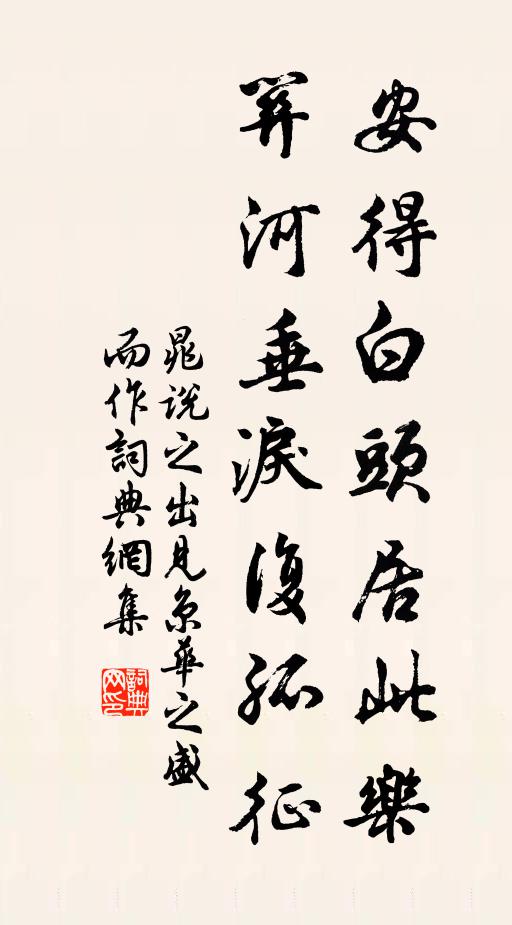 安得白頭居此樂
河垂淚復孤征
晁說之出見京華之盛
而作詞典網集
詞典
网印